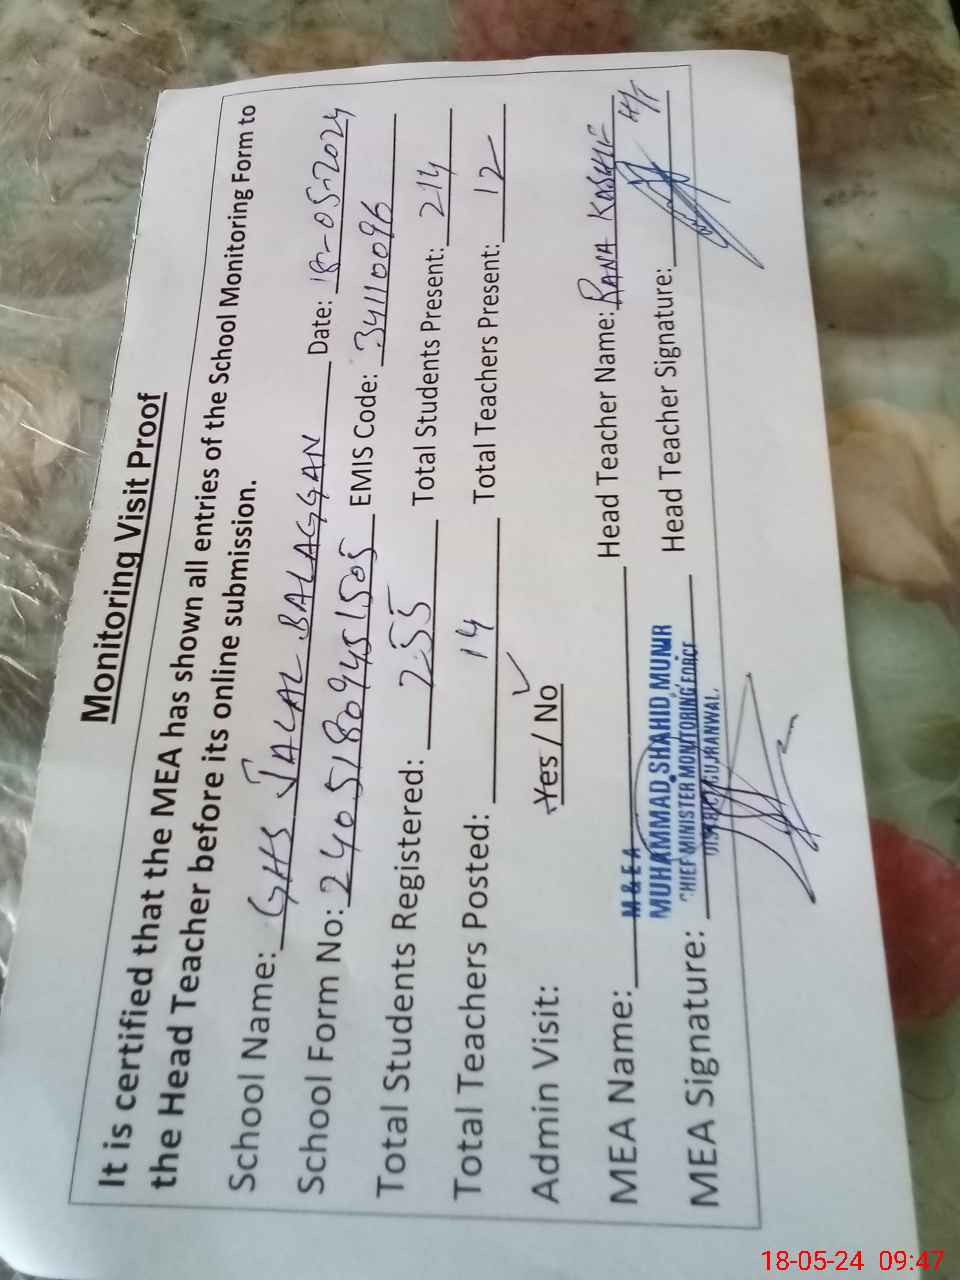 Monitoring Visit Proof
It is certified that the MEA has shown all entries of the School Monitoring Form to
the Head Teacher before its online submission.
School Name: GHS JALAL BALAGGAN Date: 18-05-2024
School Form No: 24051809451505 EMIS Code: 34110096
Total Students Registered: 255 Total Students Present: 214
Total Teachers Posted: 14 Total Teachers Present: 12
Admin Visit: Yes / No
MEA Name: Head Teacher Name: RANA KASHIF
M & E A
MUHAMMAD SHAHID MUNIR
CHIEF MINISTER MONITORING FORCE
DISTRICT GUJRANWAL.
MEA Signature: Head Teacher Signature: H/T
18-05-24 09:47